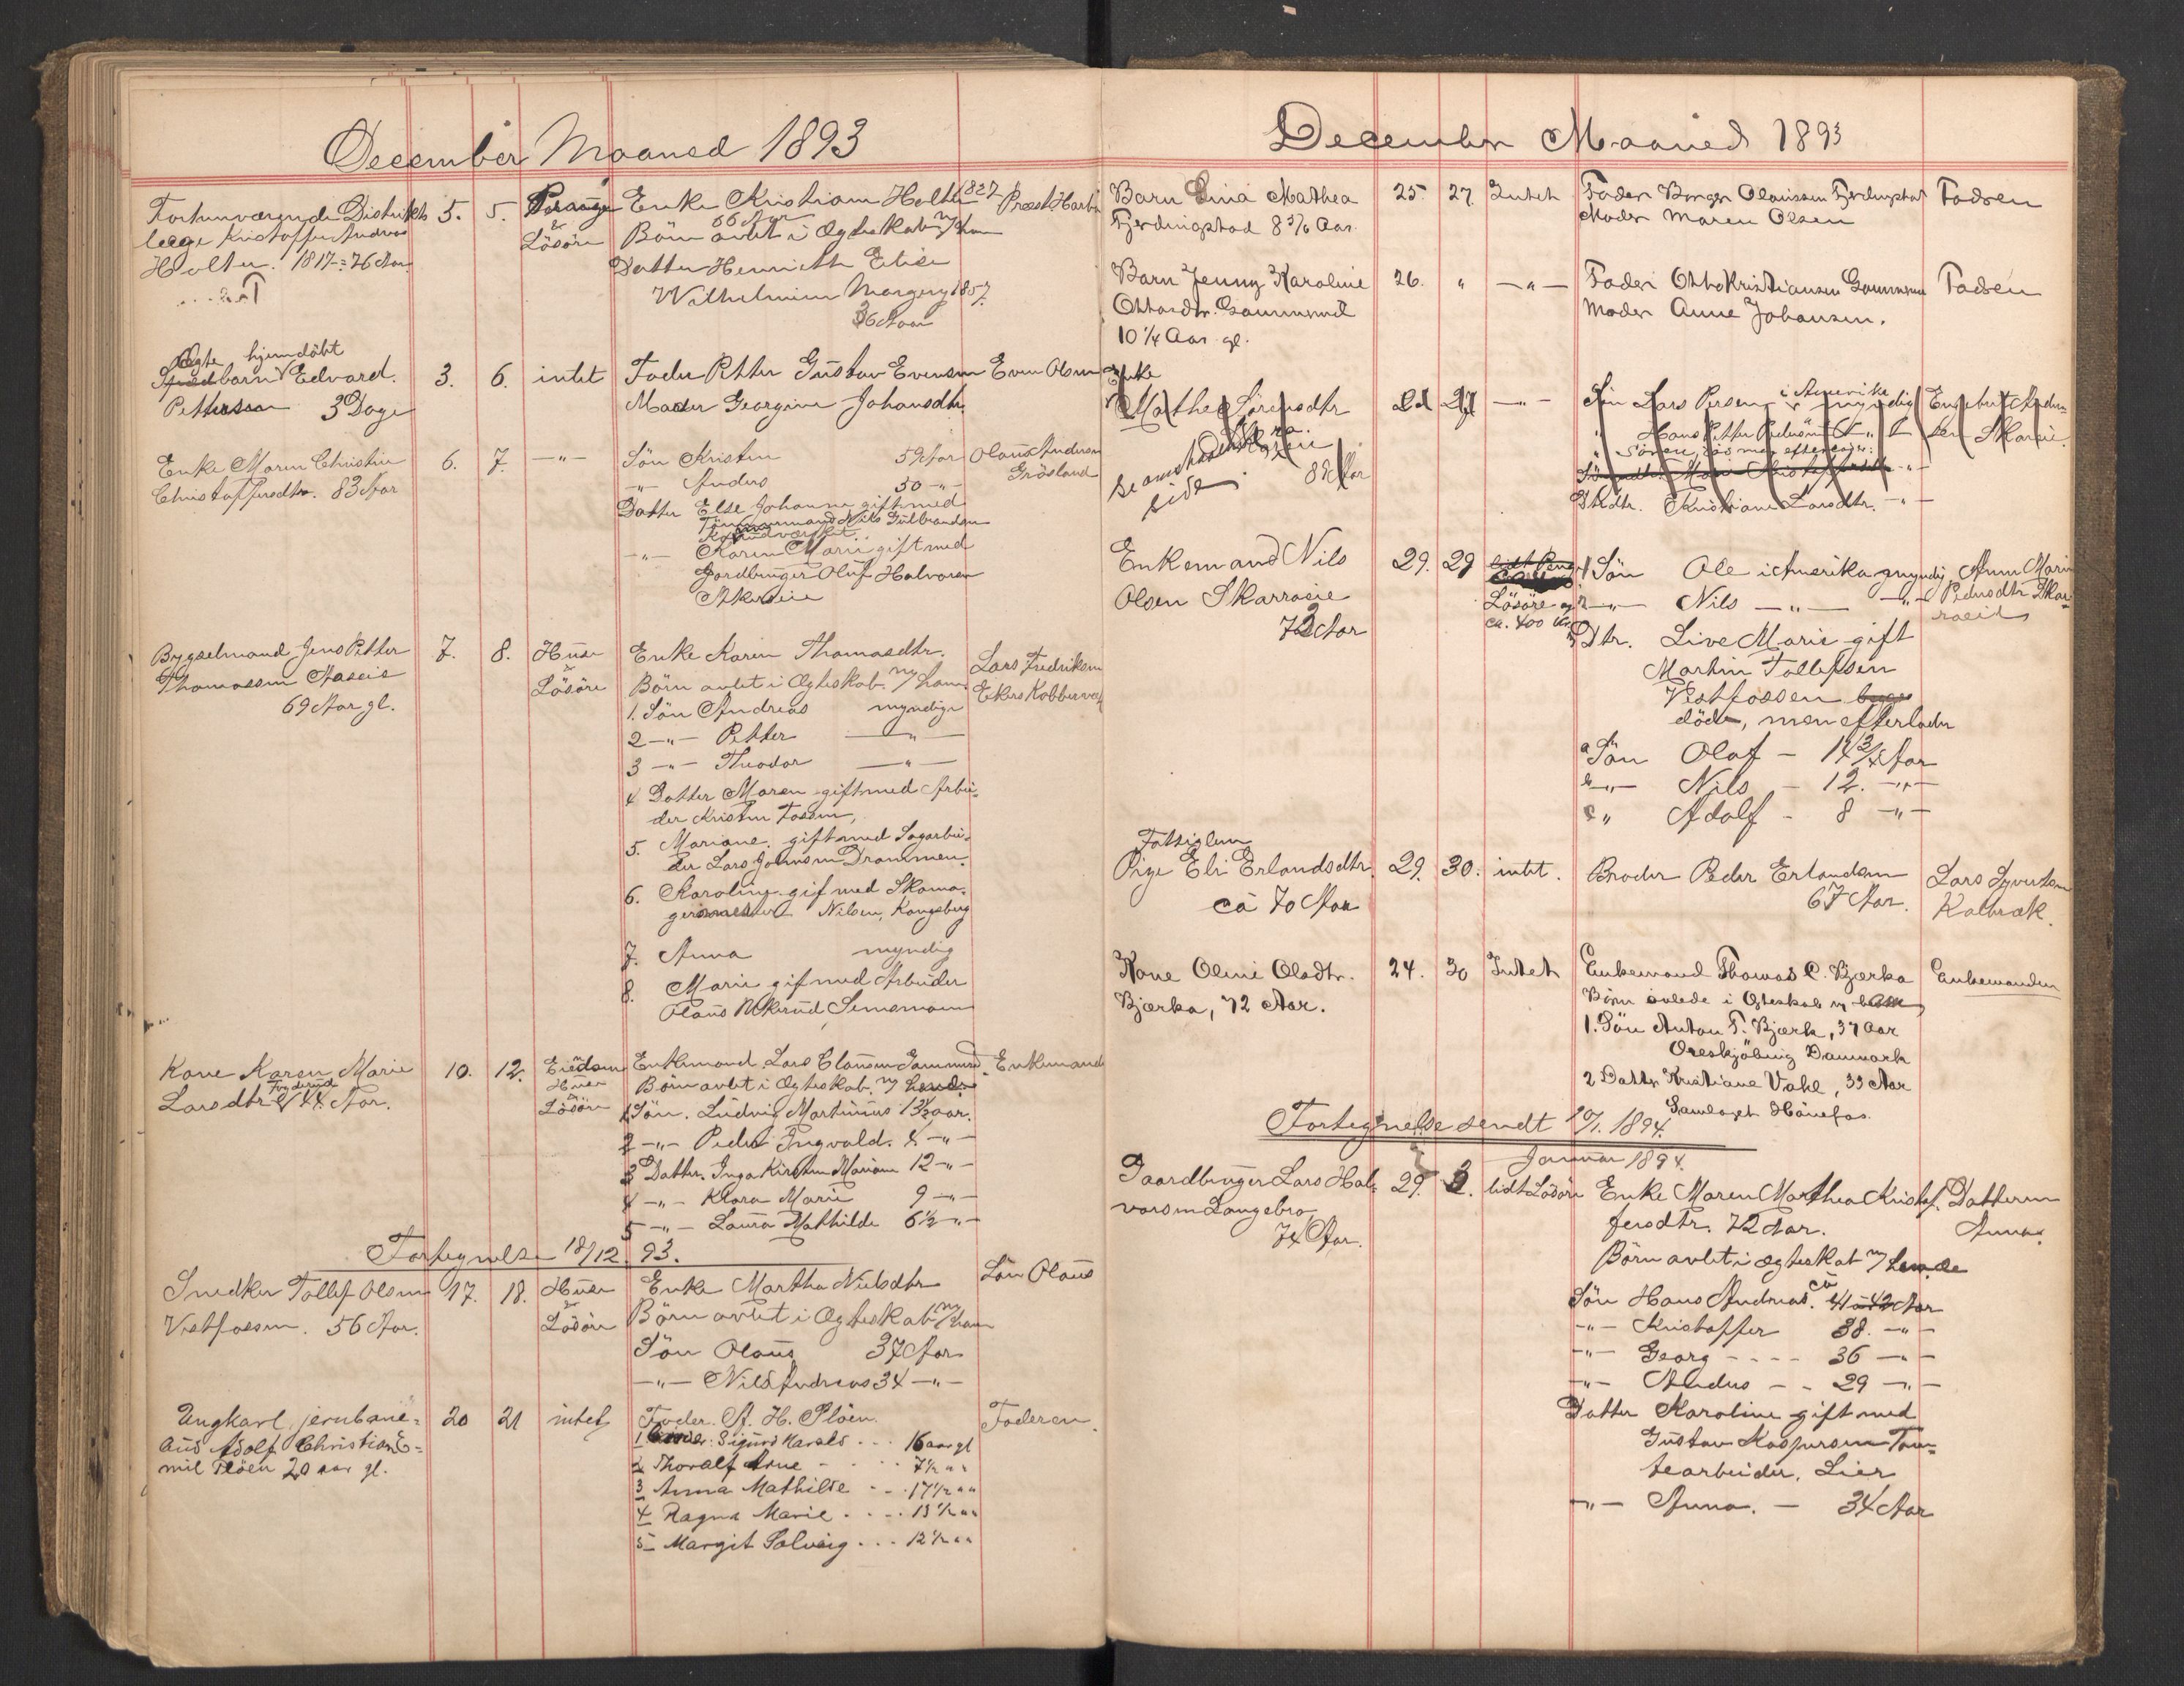 December Maaned 1893
Forhenværende Distrikts
læge Kristoffer Andreas
Holter. 1817 = 76 Aar
5. 5. Penge & Lösöre
Enke Kristiane Holter 1827
66 Aar
Börn avlet i Ægteskab m/ ham
Datter Henriette Elise
Wilhelmine 1857.
36 Aar
Præst
Ægte hjemdöbt
barn Edvard.
Pettersen 3 Dage
3. 6. intet
Fader Petter Gustav Evensen
Moder Georgine Johansdtr.
Even Olsen
Enke Maren Christine
Christoffersdtr. 83 Aar
6. 7. —"—
Sön Kristen 59 Aar
—"— Anders 50 —"—
Datter Else Johanne gift med
Tömmermand Nils Gulbrandsen
—"— Karen Marie gift med
Gardbruger Oluf Halvorsen
Olaus Andersen
Grösland
Bygselmand Jens Petter
Thomassen Aaseie
69 Aar gl.
7. 8. Huse & Lösöre
Enke Karen Thomasdtr.
Börn avlet i Ægteskab m/ ham
1. Sön Andreas myndige
2 —"— Petter —"—
3 —"— Theodor —"—
4 Datter Maren gift med Arbei-
der Kristen Fossen,
5. Mariane. gift med Sagarbei-
der Lars Johnsen Drammen.
6. Karoline. gif med Skoma-
germester Nilsen, Kongsberg
7. Anna myndig
8. Marie gif med Arbeider
Olaus
Lars Fredriksen
Ekers Kobberværk
Kone Karen Marie
Larsdtr 44 Aar.
10. 12. Eiendom Huse & Lösöre
Enkemand Lars Clausen
Börn avlet i Ægteskab. m/ hende
1 Sön. Ludvig Martinius 13½ aar.
2 —"— Peder Ingvald.
3 Datter. Inga Kirstine Mariane 12 —"—
4 —"— Klara Marie 9 —"—
5 —"— Laura Mathilde 6½ —"—
Enkemand
Fortegnelse 18/12. 93.
Snedker Tollef Olsen
Vestfossen. 56 Aar.
17. 18. Huse & Lösöre
Enke Marthe Nielsdtr
Börn avlet i Ægteskab m/ ham
Sön Olaus 37 Aar
—"— Nils Andreas 34 —"—
Sön Olaus
Ungkarl, jernbane-
Adolf Christian E-
mil Plöen 20 aar gl.
20 21 intet
Fader. A. H. Plöen
1 Sigurd Harald . . . 16 aar gl
2 Thoralf Arne - . . . 7½ " "
3 Anna Mathilde . . . 17½ " "
4 Ragna Marie . . . . 13½ " "
5 Margit Solveig . . . 12½ " "
Faderen.
December Maaned 1893
Barn Lina Mathea
Fjerdingstad 8 3/6 Aar
25. 27. Intet
Fader Borger Olaussen Fjerdingstad
Moder Maren Olsen
Faderen
Barn Jenny Karoline
Ottosdtr.
10 1/4 Aar gl.
26. " —"—
Fader Otto Kristiansen
Moder Anne Johansen.
Faderen
Enke
Mathea Sörensdtr
82 Aar
se
side
27 —"—
Sön Lars Persen i Amerika myndig
" Hans Petter Pedersen
" Sören
Dtrdtr. Kristiane Larsdtr. —"—
Engebret Ander-
sen
Enkemand Nils
Olsen Skarraseie
73 Aar
29. 29 lidt Penge
Lösöre og
ca. 400 kr
1 Sön Ole i Amerika myndig
2 —"— Nils —"— —"—
3 Dtr. Live Marie gift
Martin Tollefsen
Vestfossen
död, men efterlader
a Sön Olaf - 14 3/4 Aar
b —"— Nils - 12. —"—
c " Adolf - 8 —"—
Anne Marie
Pedersdtr Skar-
raseie
Fattiglem
Pige Eli Erlandsdtr.
ca 70 Aar
29. 30. intet.
Broder Peder Erlandsen
67 Aar.
Lars Syvertsen
Kolbræk.
Kone Oline Olsdtr.
Bjerka, 72 Aar.
24. 30 Intet
Enkemand Thomas C. Bjerka
Börn avlede i Ægteskab m/ ham
1. Sön Anton T. Bjerk, 37 Aar
Danmark
2 Datter Kristiane Vahl, 33 Aar
Samlaget Hönefos.
Enkemanden
Fortegnelse sendt 10/1. 1894.
Januar 1894.
Gaardbruger Lars Hal-
vorsen Langebro
74 Aar.
29. 3. lidt Lösöre
Enke Maren Marthea Kristof-
fersdtr. 72 Aar.
Börn avlet i ægteskab m/ hende
Sön Hans Andreas. ca 41 a 42 Aar
—"— Kristoffer 38. —"—
—"— Georg - - - - 36 —"—
—"— Anders - - 29 —"—
Datter Karoline gift med
Gustav Kaspersen Tom-
tearbeider, Lier
—"— Anna. — 34 Aar
Datteren
Anna.